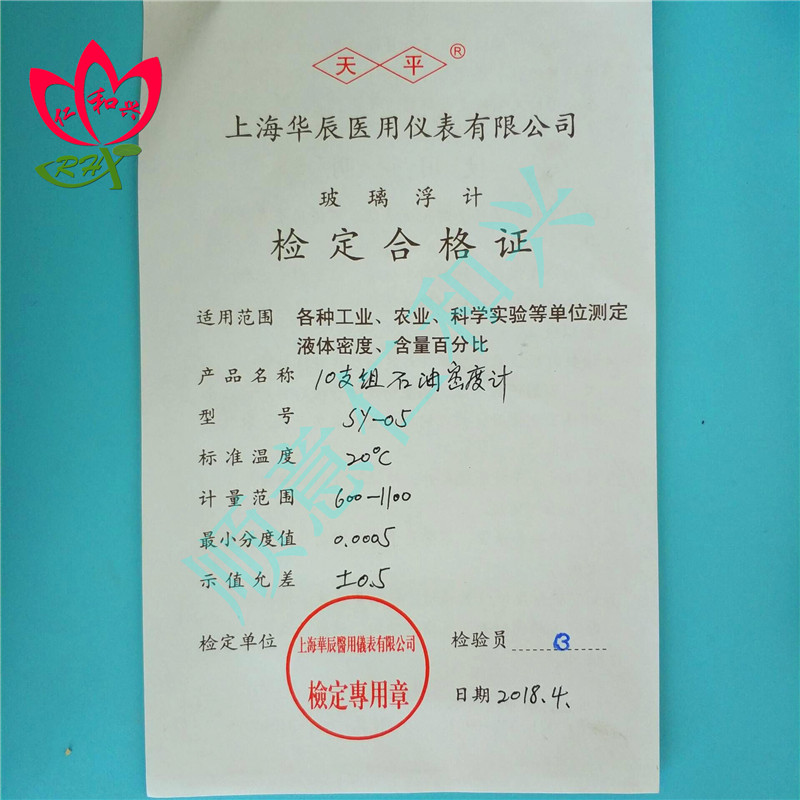 仁和兴
RHX
天平®
上海华辰医用仪表有限公司
玻璃浮计
检定合格证
适用范围 各种工业、农业、科学实验等单位测定
液体密度、含量百分比
产品名称 10支组石油密度计
型号 SY-05
标准温度 20℃
计量范围 600-1100
最小分度值 0.0005
示值允差 ±0.5
检定单位 上海華辰醫用儀表有限公司
檢定專用章
检验员 3
日期 2018.4.
顺意仁和兴